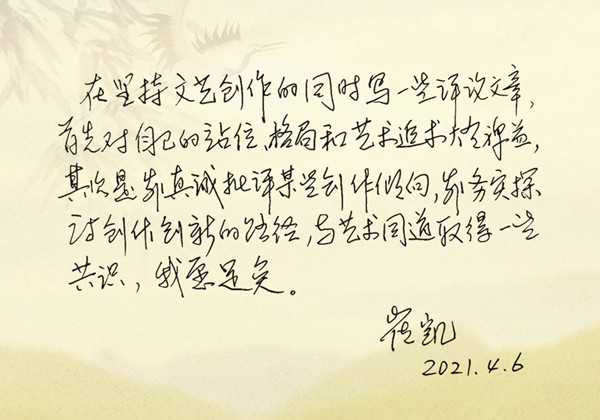 在坚持文艺创作的同时写一些评论文章，
首先对自己的站位、格局和艺术追求大有裨益，
其次是能真诚批评某些创作倾向，能务实探
讨创作创新的路径，与艺术同道取得一些
共识，我愿足矣。
崔凯
2021.4.6